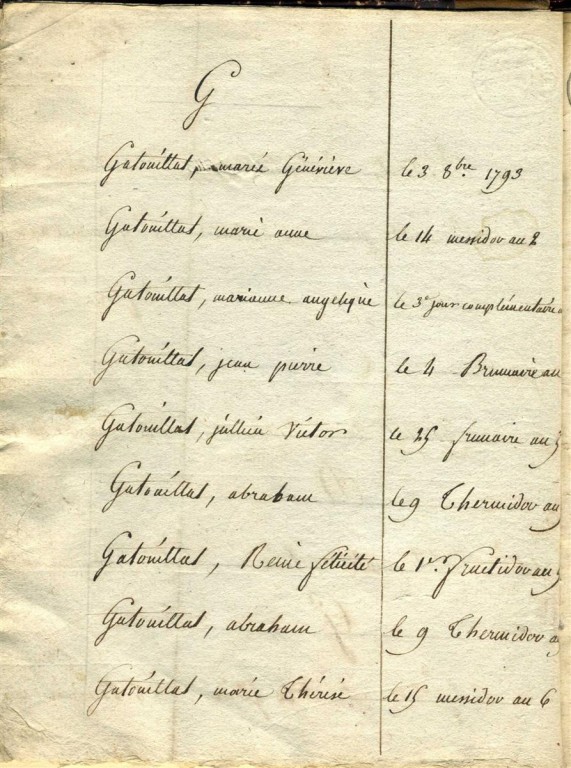 G
Gatouillat, marie Généviève le 3 8bre. 1793
Gatouillat, marie anne le 14 messidor an 2
Gatouillat, marianne angelique le 3e jour complémentaire
Gatouillat, jean pierre le 4 Brumaire an
Gatouillat, jullien Victor le 25 frimaire an
Gatouillat, abraham le 9 Thermidor an
Gatouillat, Reine félicité le 1er. fructidor an
Gatouillat, abraham le 9 Thermidor
Gatouillat, marie Thérèse le 15 messidor an 6